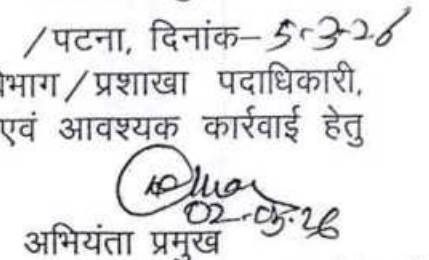 /पटना, दिनांक– 5-3-26
भाग/प्रशाखा पदाधिकारी,
एवं आवश्यक कार्रवाई हेतु
02-03-26
अभियंता प्रमुख